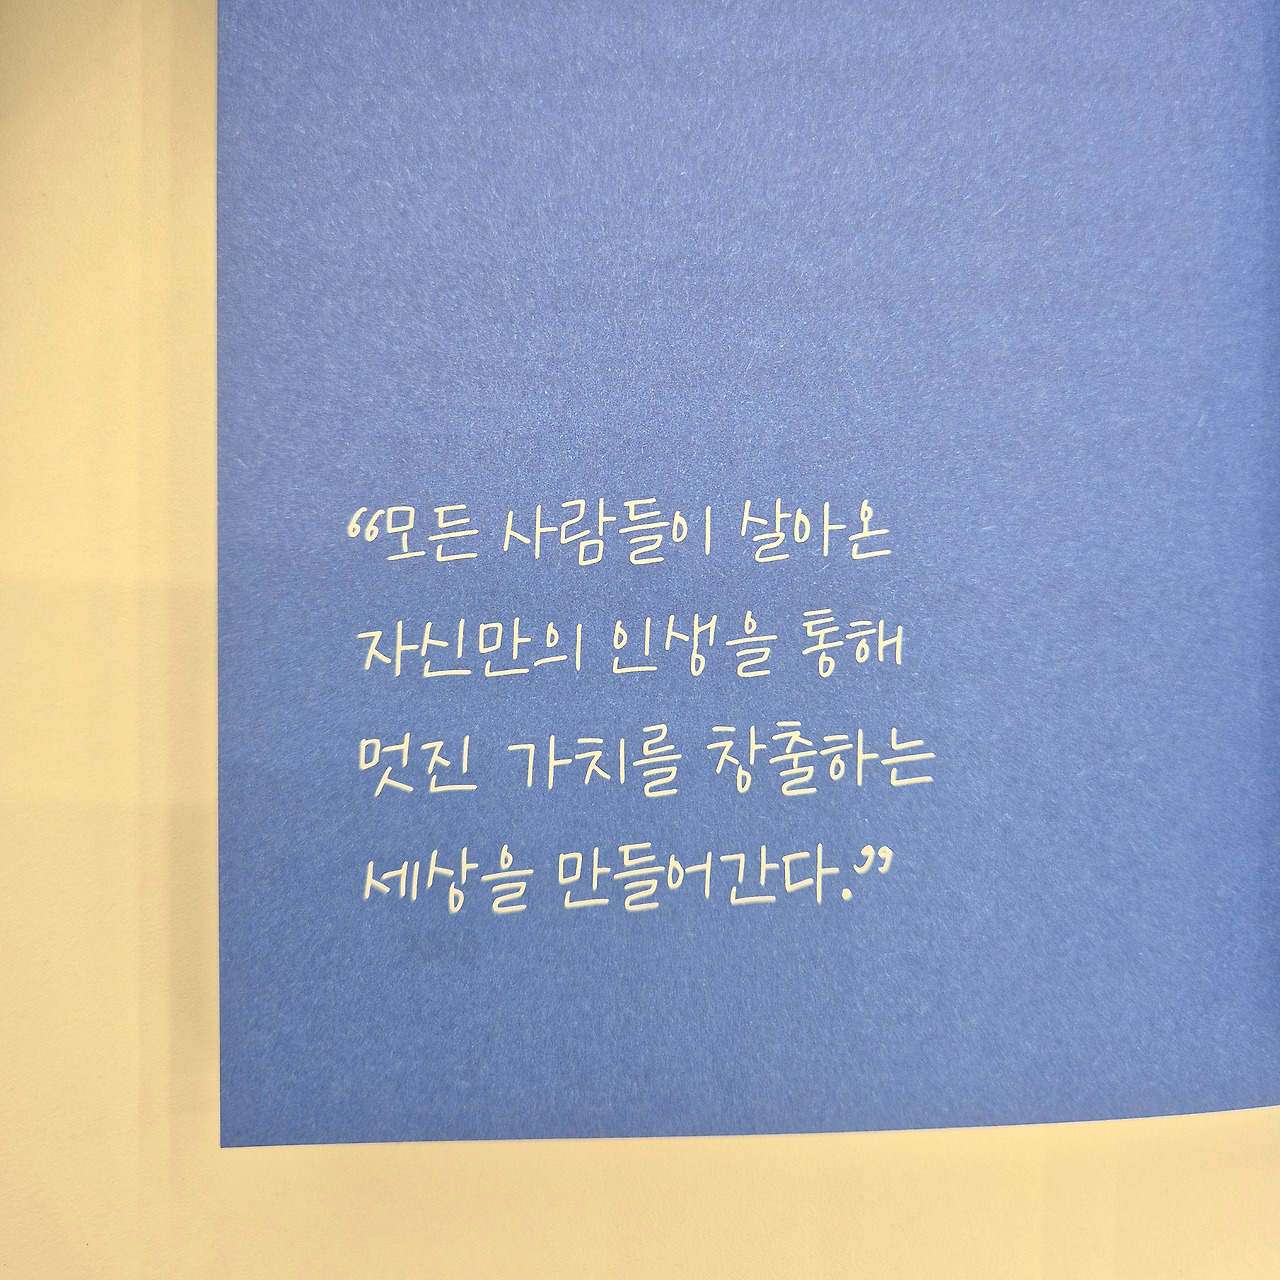 “모든 사람들이 살아온
자신만의 인생을 통해
멋진 가치를 창출하는
세상을 만들어간다.”